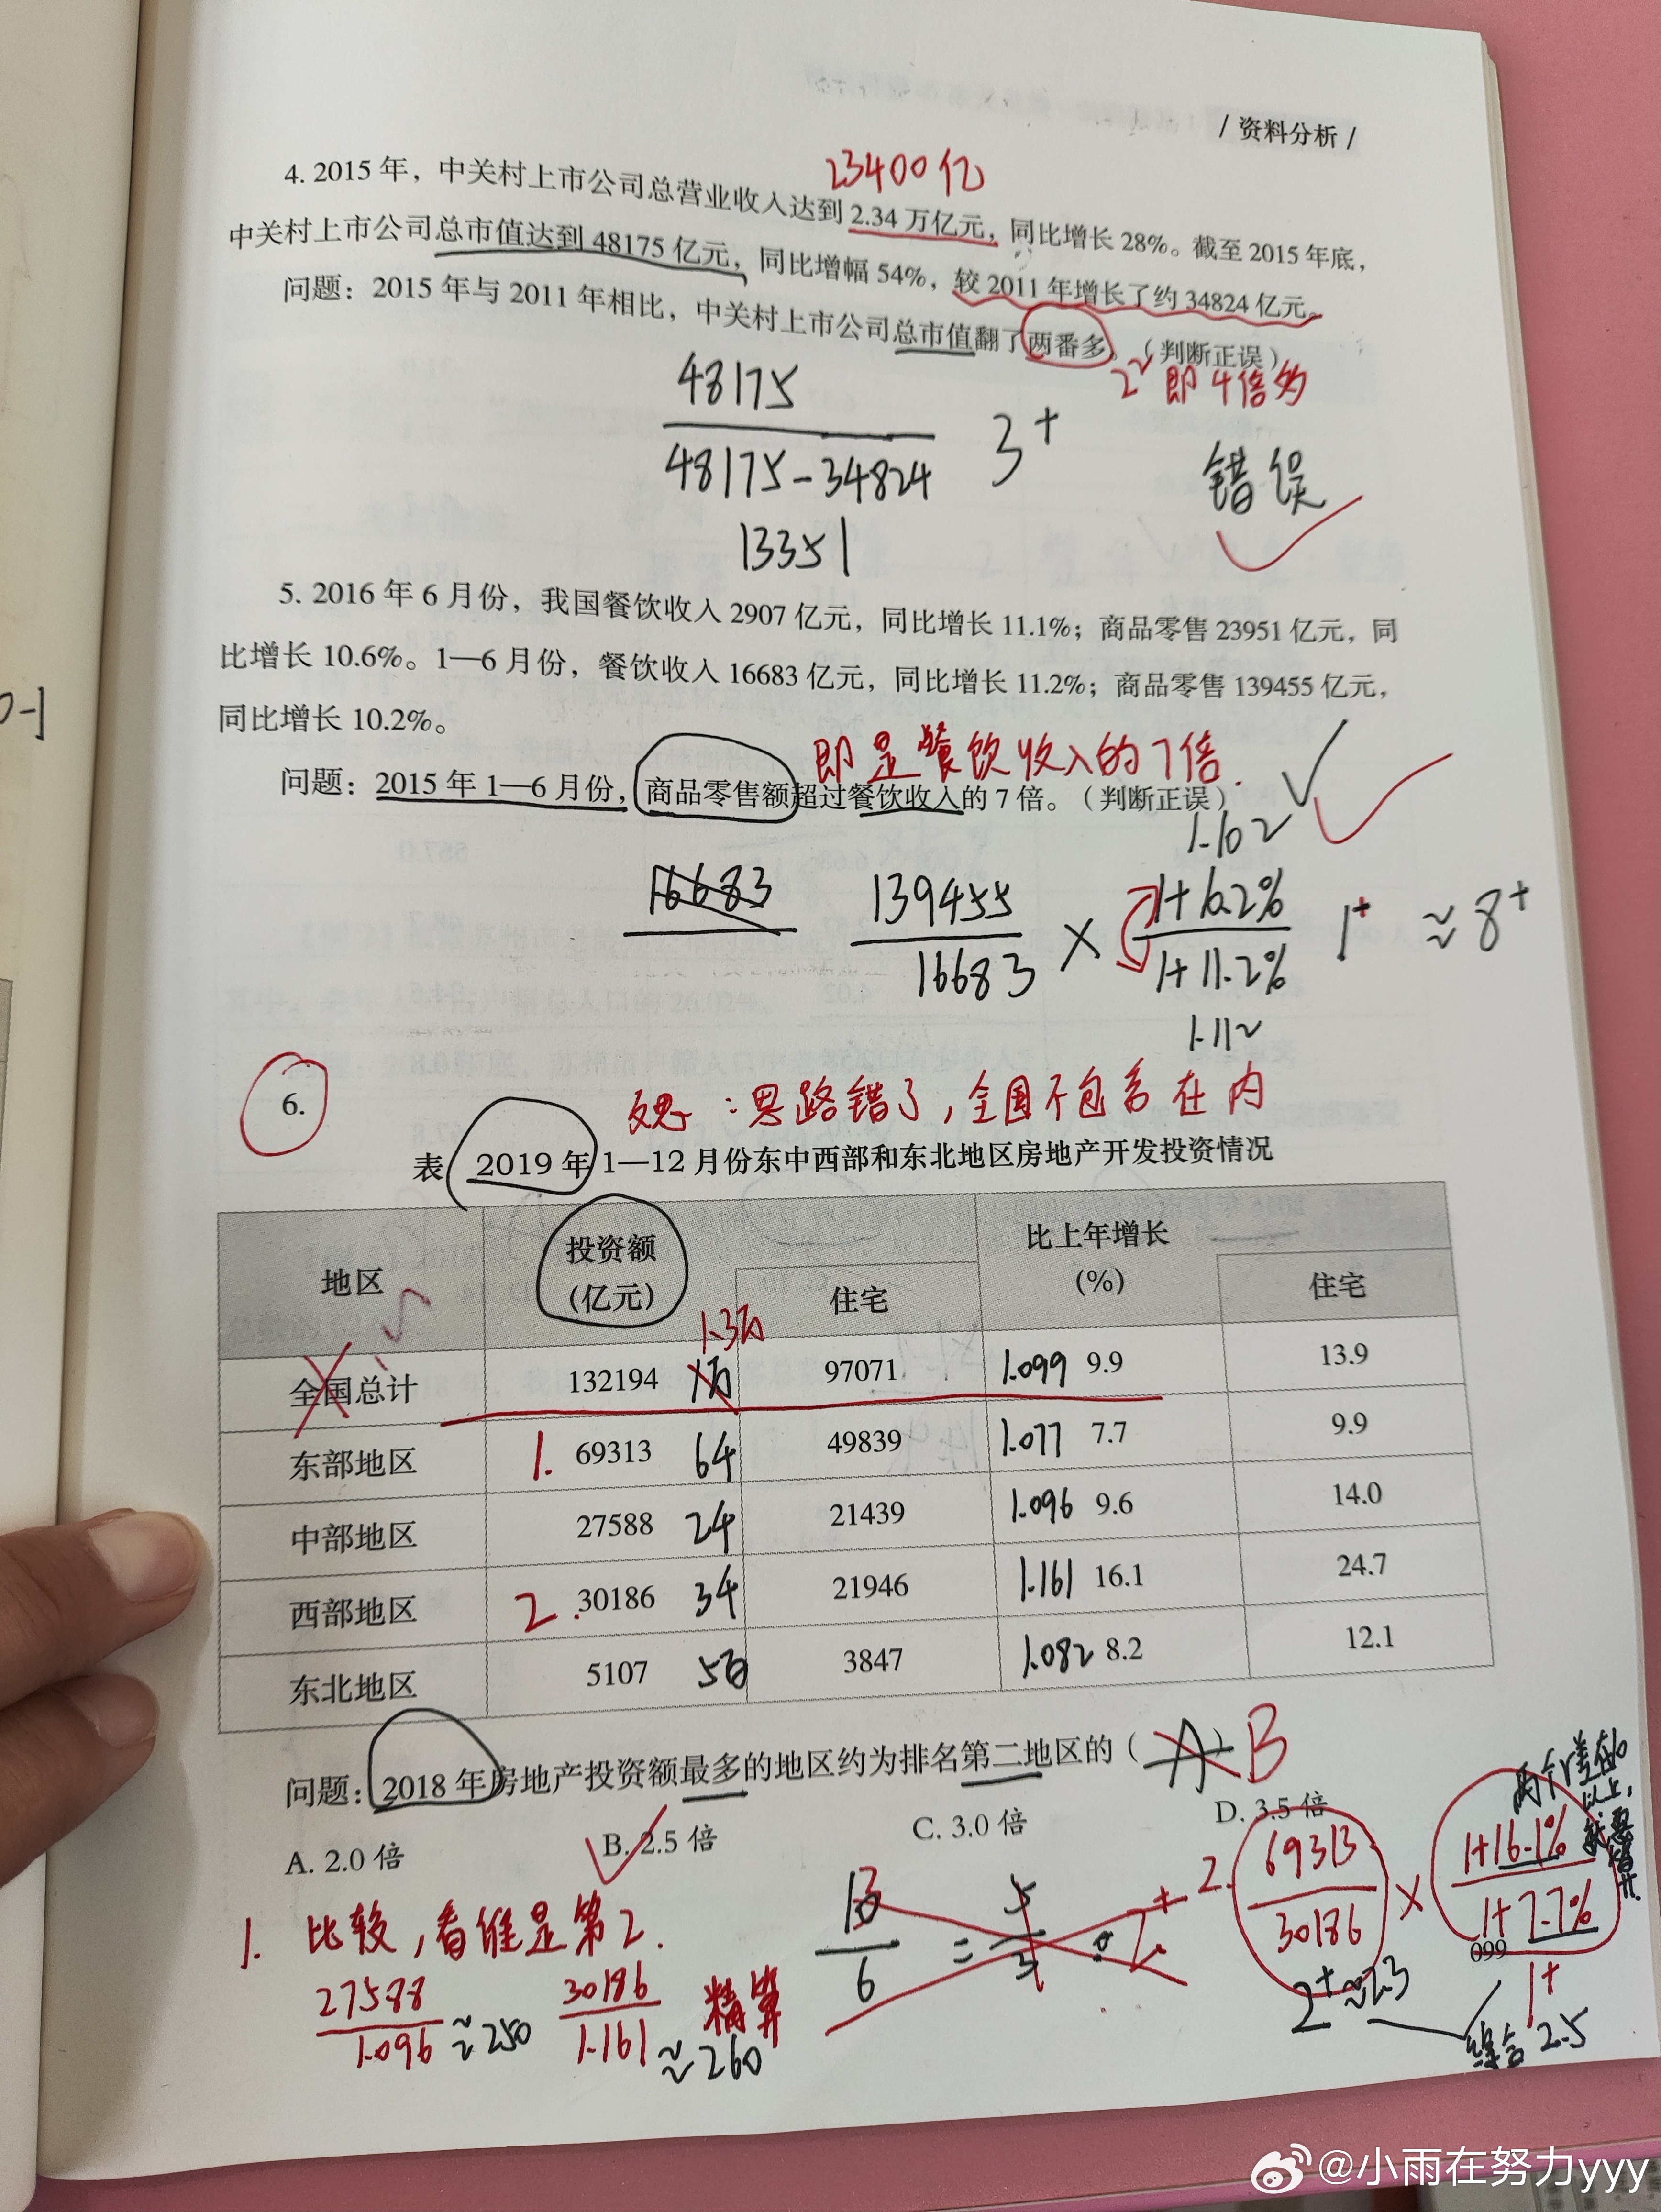 / 资料分析 /
23400亿
4. 2015 年，中关村上市公司总营业收入达到 2.34 万亿元，同比增长 28%。截至 2015 年底，
中关村上市公司总市值达到 48175 亿元，同比增幅 54%，较 2011 年增长了约 34824 亿元。
问题：2015 年与 2011 年相比，中关村上市公司总市值翻了两番多。（判断正误）
2² 即4倍多
48175
48175-34824
3+
错误
13351
5. 2016 年 6 月份，我国餐饮收入 2907 亿元，同比增长 11.1%；商品零售 23951 亿元，同
比增长 10.6%。1—6 月份，餐饮收入 16683 亿元，同比增长 11.2%；商品零售 139455 亿元，
同比增长 10.2%。
0-1
即是餐饮收入的7倍.
问题：2015 年 1—6 月份，商品零售额超过餐饮收入的 7 倍。（判断正误）
1.102
16683
139455
16683
×
1+10.2%
1+11.2%
1+ ≈8+
1.112
6.
反思：思路错了，全国不包含在内
表 2019 年 1—12 月份东中西部和东北地区房地产开发投资情况
地区 投资额（亿元） 住宅 比上年增长（%） 住宅
1.3万
全国总计 132194 97071 1.099 9.9 13.9
东部地区 1. 69313 64 49839 1.077 7.7 9.9
中部地区 27588 24 21439 1.096 9.6 14.0
西部地区 2. 30186 34 21946 1.161 16.1 24.7
东北地区 5107 3847 1.082 8.2 12.1
问题：2018 年房地产投资额最多的地区约为排名第二地区的（A）B
A. 2.0 倍 B. 2.5 倍 C. 3.0 倍 D. 3.5 倍
1. 比较，看谁是第2.
27588
1.096
≈250
30186
1.161
≈260
精算
6
=
5
3
2.
69313
30186
×
1+16.1%
1+7.7%
099
2+≈2.3
1+
综合 2.5
@小雨在努力yyy